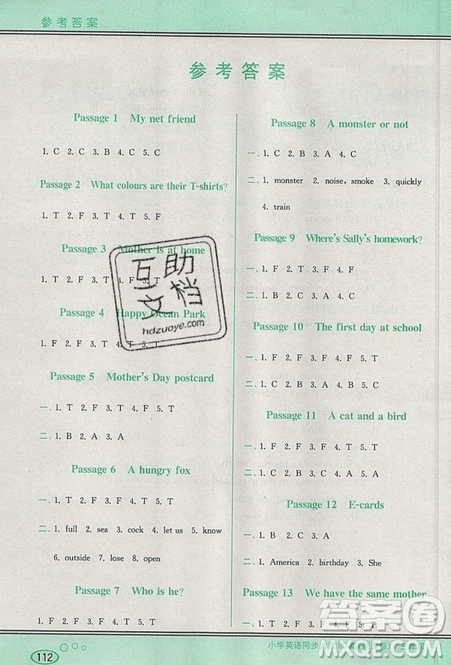 参考答案
参考答案
Passage 1 My net friend
1. C 2. C 3. B 4. C 5. C
Passage 2 What colours are their T-shirts?
1. T 2. F 3. T 4. T 5. F
Passage 3 Mother is at home
1. T 2. F 3. F
Passage 4 Happy Ocean Park
1. F 2. F 3. T 4. T 5. T
Passage 5 Mother's Day postcard
一、1. T 2. F 3. F 4. T 5. T
二、1. B 2. A 3. A
Passage 6 A hungry fox
一、1. T 2. F 3. F 4. T 5. T
二、1. full 2. sea 3. cock 4. let us 5. know
6. outside 7. lose 8. open
Passage 7 Who is he?
1. F 2. T 3. F 4. F 5. T
Passage 8 A monster or not
一、1. C 2. B 3. B 4. C 5. C
二、1. monster 2. noise, smoke 3. quickly
4. train
Passage 9 Where's Sally's homework?
一、1. F 2. T 3. T 4. F 5. F
二、1. C 2. B 3. A
Passage 10 The first day at school
一、1. T 2. F 3. F 4. F 5. T
二、1. B 2. C 3. C
Passage 11 A cat and a bird
一、1. T 2. F 3. F 4. F 5. T
二、1. C 2. A 3. B
Passage 12 E-cards
一、1. C 2. A 3. B
二、1. America 2. birthday 3. She
Passage 13 We have the same mother
1. T 2. F 3. T 4. T 5. F
互助文档
hdzuoye.com
112
小学英语同步
答案圈
MXQE.COM